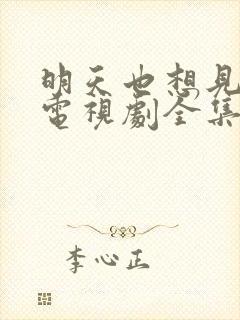 明天也想見
電視劇全集
李心正